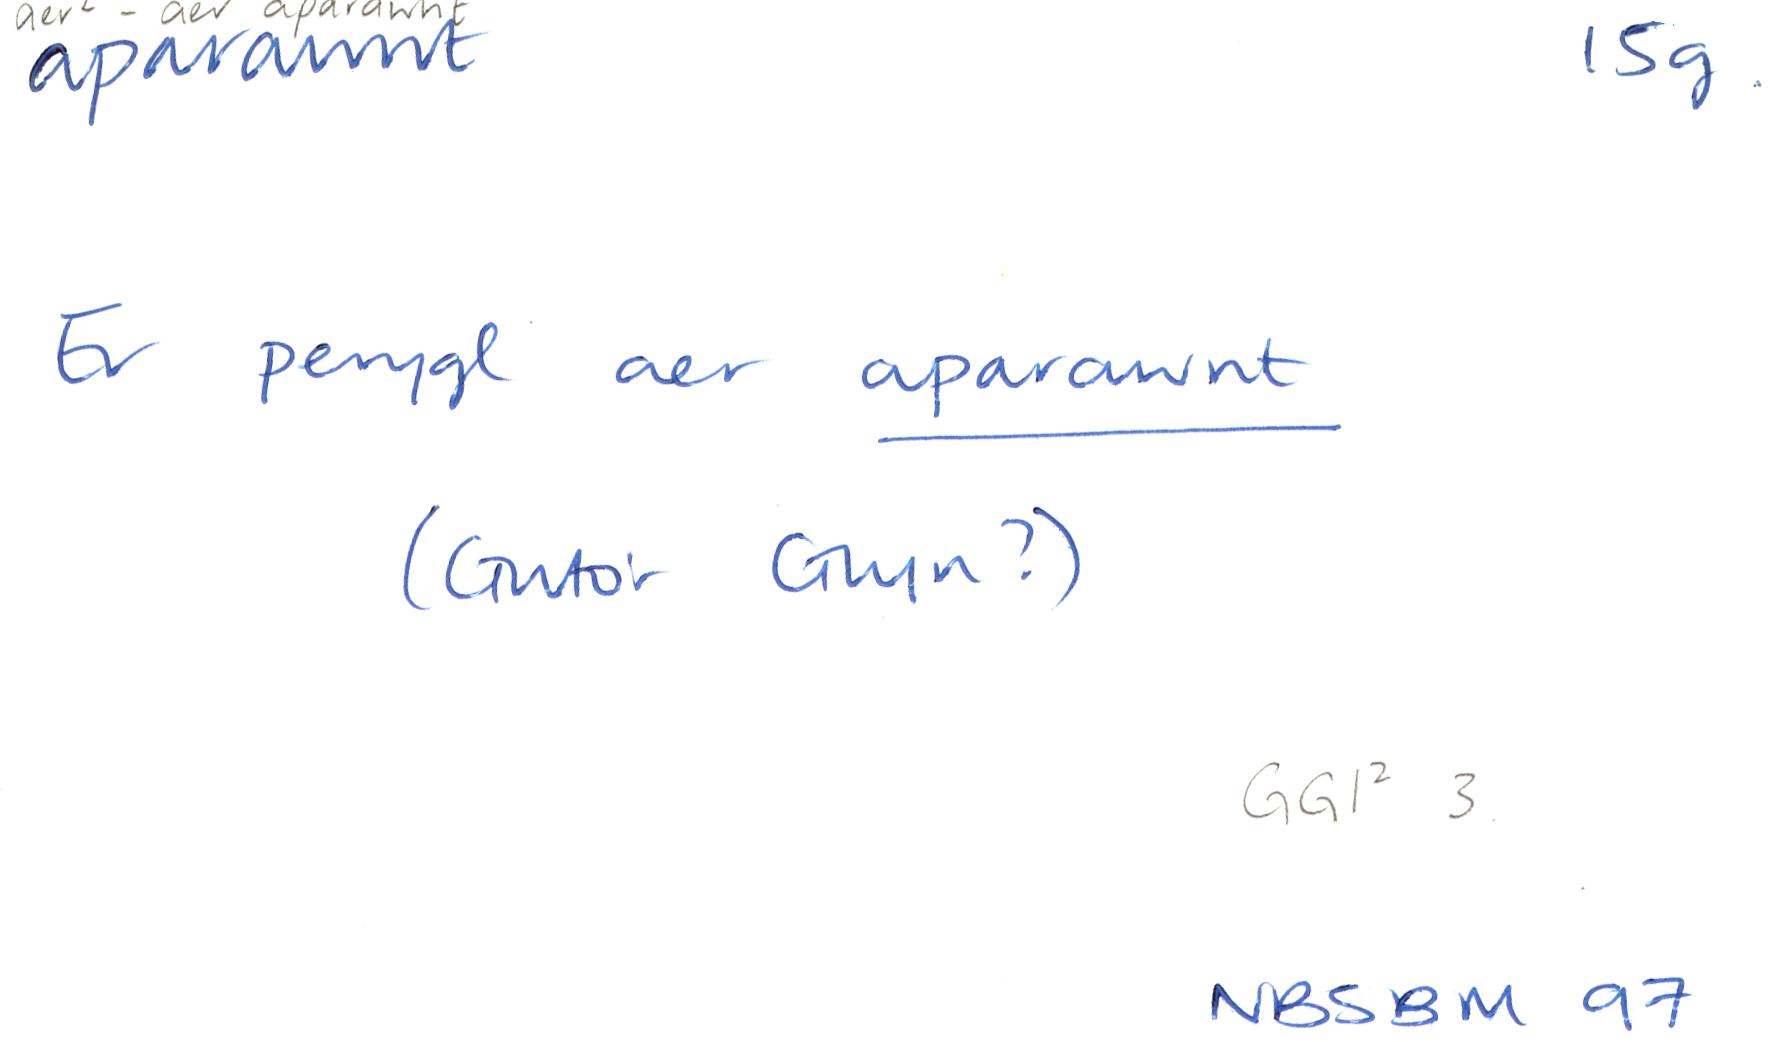 aer² - aer aparawnt
aparawnt 15g.
Er perygl aer aparawnt
(Guto'r Glyn?)
GGl² 3.
NBSBM 97